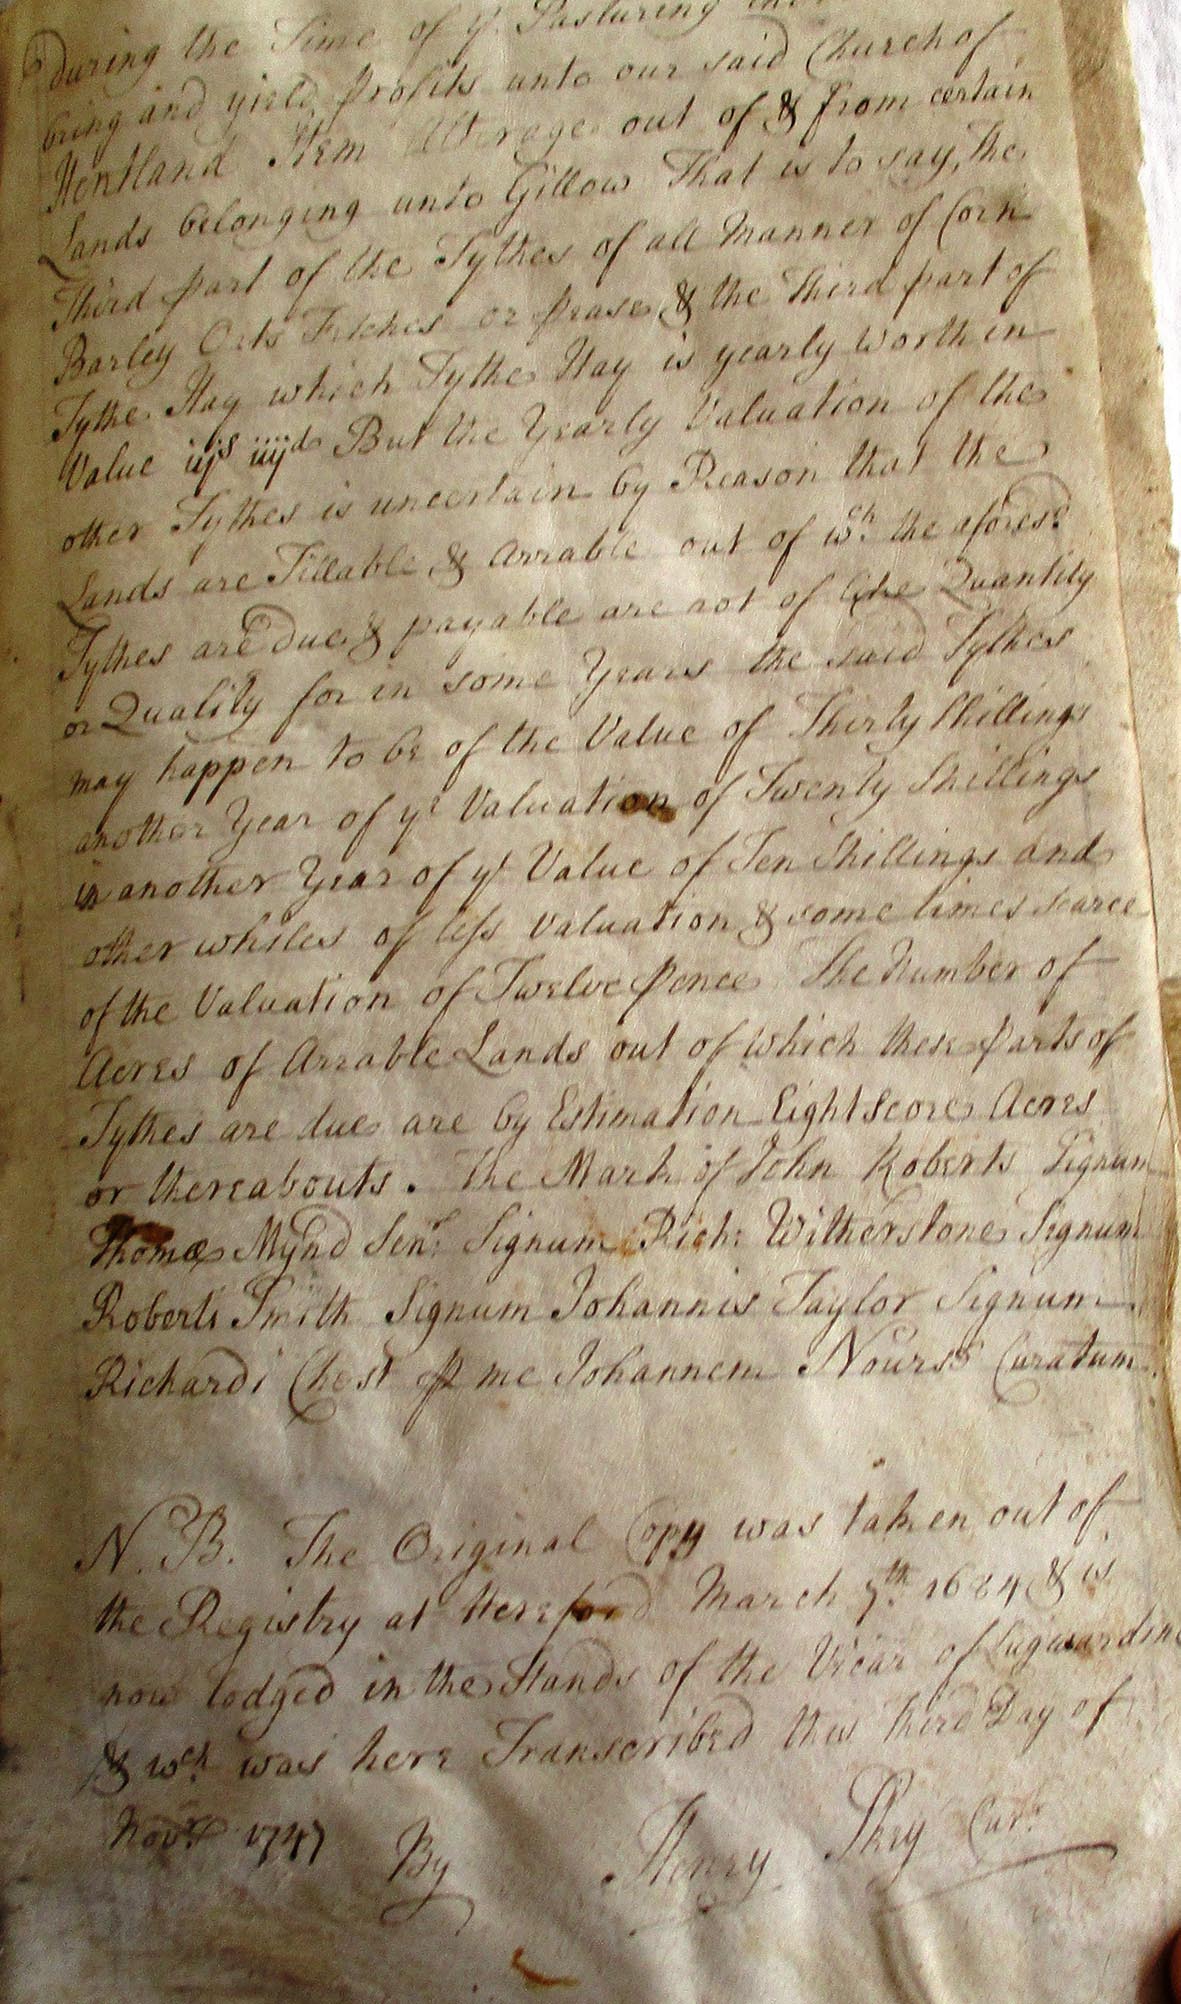 During the Time of ye. Pasturing
bring and yield profits unto our said Church of
Hentland Item Alterage out of & from certain
Lands belonging unto Gillow That is to say, the
Third part of the Tythes of all Manner of Corn
Barley Oats Fitches or pease & the Third part of
Tythe Hay which Tythe Hay is yearly worth in
Value iijs iiijd But the Yearly Valuation of the
other Tythes is uncertain by Reason that the
Lands are Tillable & Arrable out of wch. the aforesd.
Tythes are due & payable are not of like Quantity
or Quality for in some Years the said Tythes
may happen to be of the Value of Thirty Shillings
another Year of ye Valuation of Twenty Shillings
in another Year of ye Value of Ten Shillings and
other whiles of less Valuation & some times scarce
of the Valuation of Twelve pence The Number of
Acres of Arrable Lands out of which these parts of
Tythes are due are by Estimation Eightscore Acres
or thereabouts. The Mark of John Roberts Signum
Thomæ Mynd Senr: Signum Rich: Witherstone Signum
Roberti Smith Signum Johannis Taylor Signum
Richardi Chest p me Johannem Nourse Curatum.
N. B. The Original Copy was taken out of
the Registry at Hereford March 7th. 1624 & is
now lodged in the Hands of the Vicar of Lugwardine
& wch. was here Transcribed this third Day of
Novr 1747 By Henry Skey Curt.